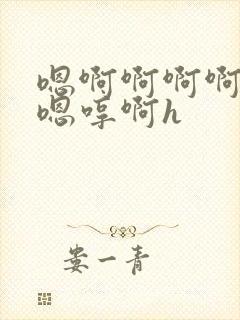 嗯啊啊啊啊
嗯哼啊h
娄一青